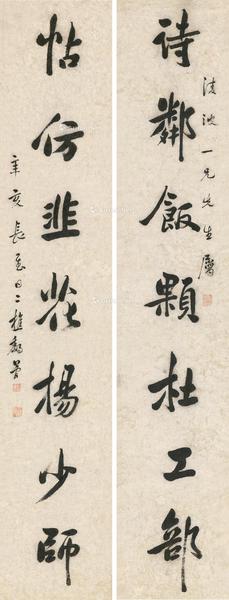 凌波一兄先生屬
詩鄰飯顆杜工部
帖仿韭花楊少師
辛亥長至日二樵黎簡